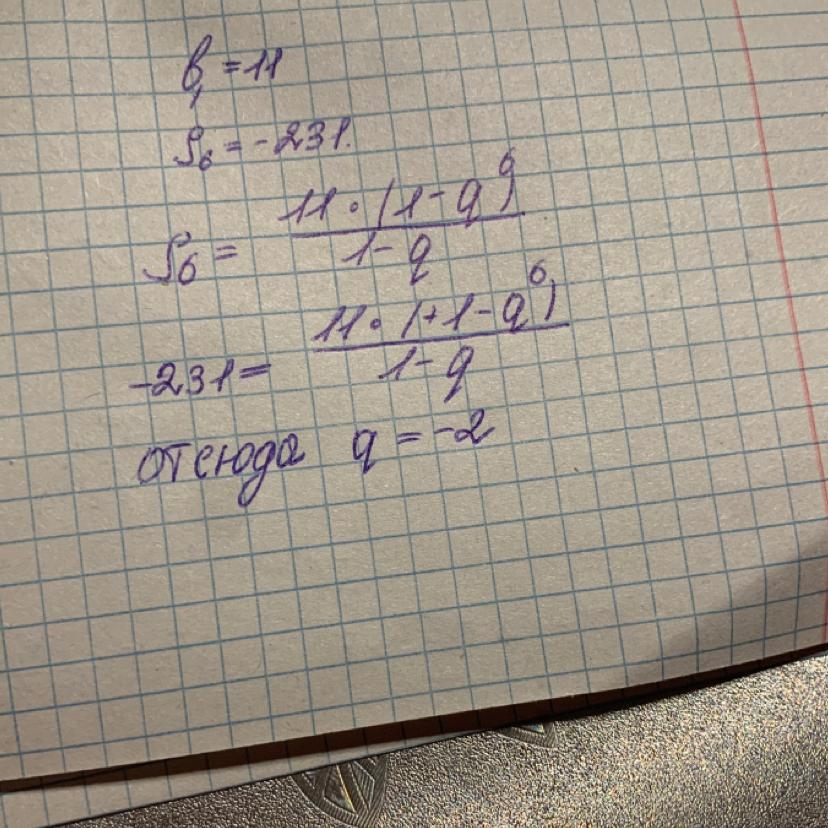 b₁ = 11
S₆ = -231.
S₆ = 11 · (1 - q⁶) / 1 - q
-231 = 11 · (+1 - q⁶) / 1 - q
отсюда q = -2